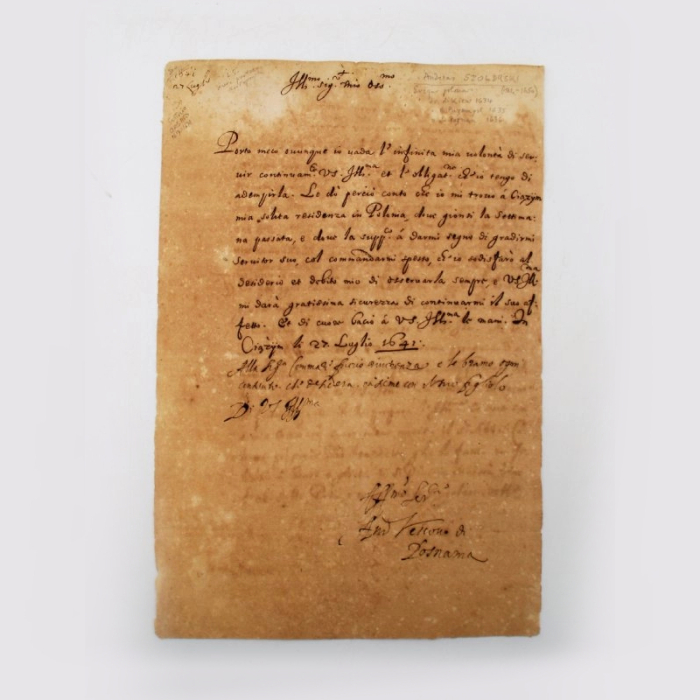 1641
27 Luglio
Andreas SZOLDRSKI
Ill.mo sig. mio oss.mo
Porto meco ovunque io vada l'infinita mia volontà di ser-
vir continuam.te V.S. Ill.ma et l'obligat.ne ch'io tengo di
adempirla. Le dò perciò conto che io mi trovo a Ciązyn
mia solita residenza in Polonia, dove gionsi la settima-
na passata, e dove la supp.co à darmi segno di gradirmi
servitor suo, col commandarmi spesso, ch'io sodisfarò al
desiderio et debito mio di osservarla sempre, e V.S. Ill.ma
mi darà gratissima sicurezza di continuarmi il suo af-
fetto. Et di cuore bacio à V.S. Ill.ma le mani. In
Ciązyn li 27 Luglio 1641.
Alla e lo bramo ogni
con
Di V.S. Ill.ma
Aff.mo
And. Vescovo di
Posnania